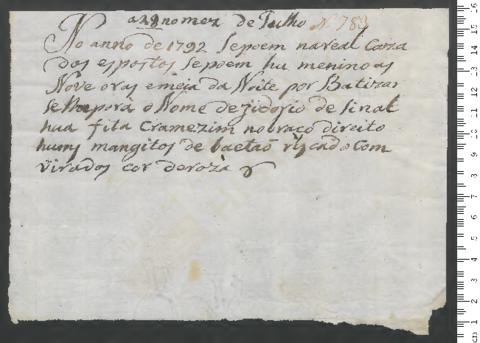 a 29 no mez de Julho N. 783
No anno de 1792 Sepoem na real Caza
dos espostos Sepoem hu menino as
Nove oras emeja da Noite por Batizar
Selheporà o Nome dezidorio de Sinal
hua fita Cramezim nobraço direito
huns mangitos de baetaõ rizcado Com
virados cor deroza